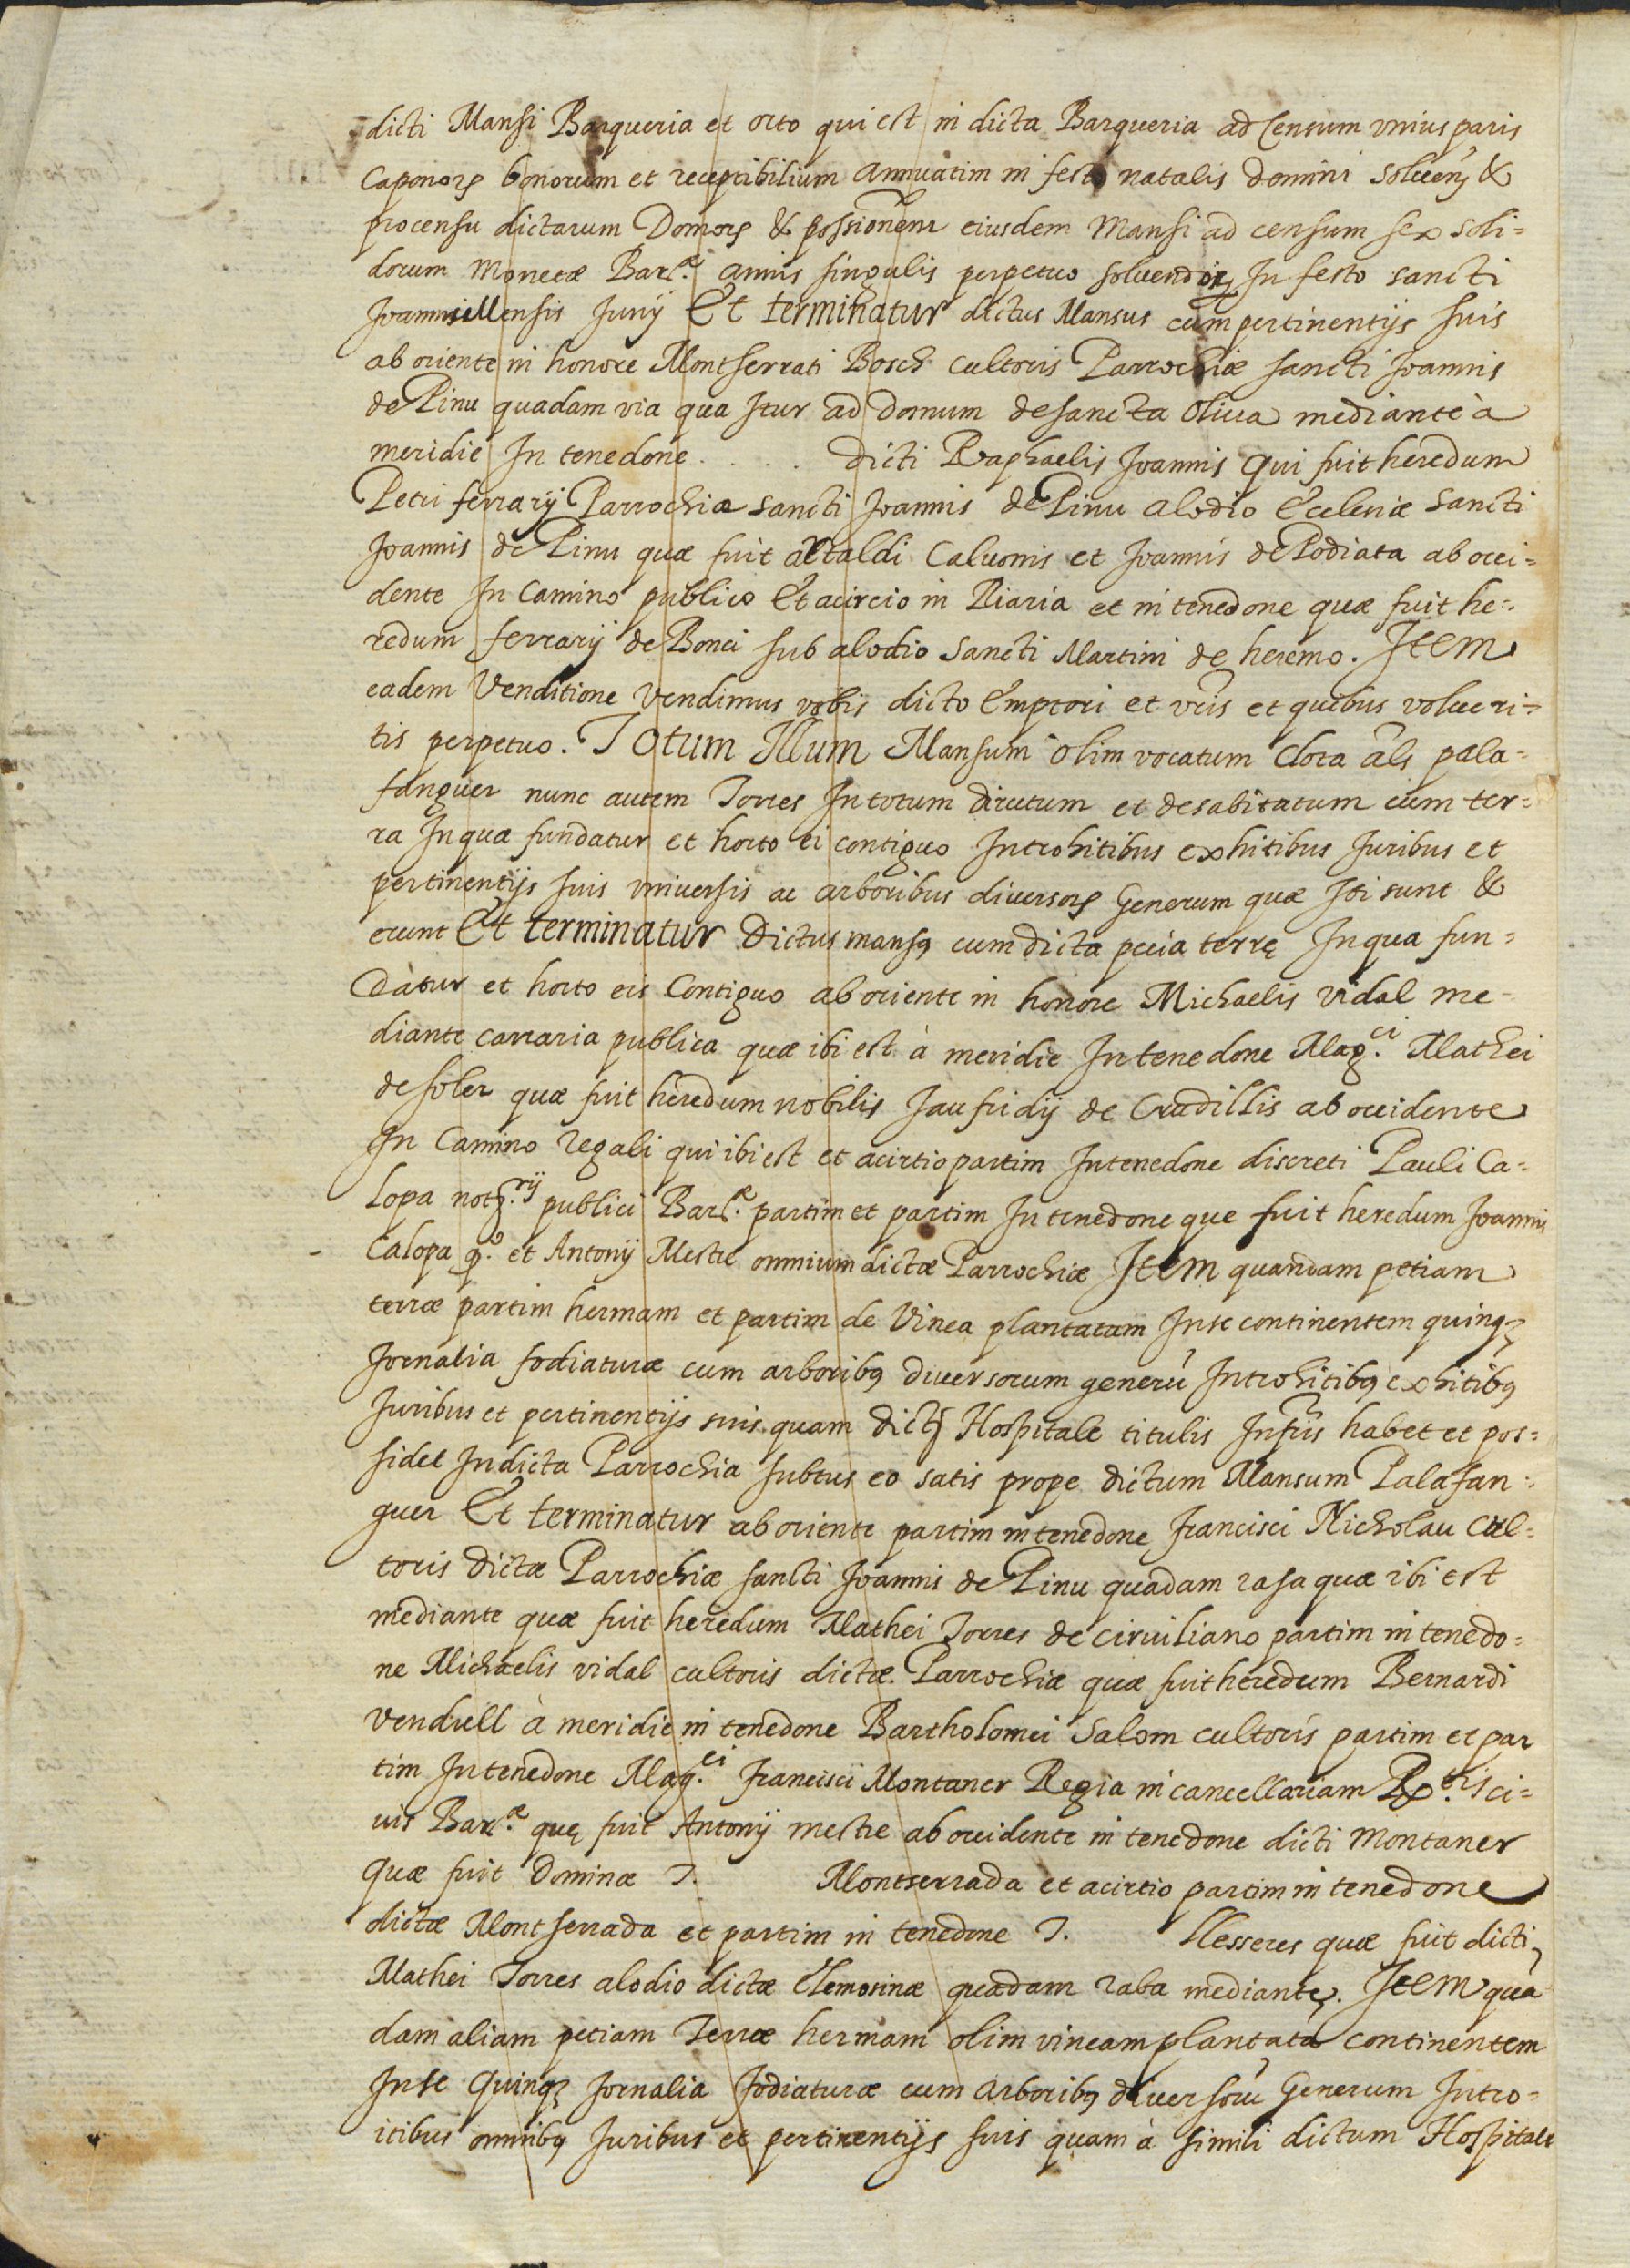 dicti Mansi Barqueria et orto qui est in dicta Barqueria ad Censum vnius paris
Caponorꝝ bonorum et receptibilium annuatim in festo natalis domini soluenꝝ &
procensu dictarum Domorꝝ & possionem eiusdem Mansi ad censum sex soli=
dorum Monetæ Barꝭ.æ annis singulis perpetuo soluendorꝝ In festo sancti
Joannis Mensis Junij Et terminatur dictus Mansus cum pertinentijs suis
ab oriente in honore Montserrati Bosch cultoris Parrochiæ sancti Joannis
de Pinu quadam via qua Itur ad domum de sancta oliua mediante à
meridie In tenedone . . . . . dicti Raphaelis Joannis qui fuit heredum
Petri ferrarij Parrochiæ sancti Joannis de Pinu alodio Eclesiæ sancti
Joannis de Pinu quæ fuit altaldi Caluonis et Joannis de Podiata ab occi=
dente In Camino publico Et acircio in Riaria et in tenedone quæ fuit he=
redum ferrarij de Bonci sub alodio sancti Martini de heremo. Item
eadem Venditione Vendimus vobis dicto Emptori et vr̃is et quibus volueri=
tis perpetuo. Totum Illum Mansum olim vocatum Clota al̃s pala=
fanguer nunc autem Torres In totum dirutum et desabitatum cum ter=
ra In qua fundatur et horto ei contiguo Introhitibus exhitibus Juribus et
pertinentijs suis vniuersis ac arboribus diuersorꝝ Generum quæ Ibi sunt &
erunt Et terminatur Dictus mansꝯ cum dicta pecia terrę In qua fun=
Datur et horto eis Contiguo ab oriente in honore Michaelis vidal me=
diante carraria publica quæ ibi est à meridie In tenedone Mag.ci Mathei
de soler quæ fuit heredum nobilis Jaufridij de Crudillis ab occidente
In Camino regali qui ibi est et acirtio partim In tenedone discreti Pauli Ca=
lopa notꝫ.rij publici Barꝭ.æ partim et partim In tenedone que fuit heredum Joannis
Calopa q.º et Antonij Mestre omnium dictæ Parrochiæ Item quandam petiam
terræ partim hermam et partim de Vinea plantatam In se continentem quinqꝫ
Jornalia fodiaturæ cum arboribꝯ diuersorum generũ Introhitibꝯ exhitibꝯ
Juribus et pertinentijs suis quam dictꝫ Hospitale titulis Infr̃is habet et pos=
sidet In dicta Parrochia subtus eo satis prope dictum Mansum Palafan=
guer Et terminatur ab oriente partim in tenedone francisci Nicholau Cul=
toris dictæ Parrochiæ sancti Joannis de Pinu quadam rasa quæ ibi est
mediante quæ fuit heredum Mathei Torres de ciruiliano partim in tenedo=
ne Michaelis vidal cultoris dictæ Parrochiæ quæ fuit heredum Bernardi
Vendrell à meridie in tenedone Bartholomei Salom cultoris partim et par
tim In tenedone Mag.ci francisci Montaner Regia in cancellariam Rx.tis ci=
uis Barꝭ.æ quę fuit Antonij mestre ab occidente in tenedone dicti Montaner
quæ fuit Dominæ T. Montserrada et acirtio partim in tenedone
dictæ Montserrada et partim in tenedone T. llesseres quæ fuit dicti
Mathei Torres alodio dictæ Elemosinæ quadam raba mediante. Item quã
dam aliam petiam Terræ hermam olim vineam plantatã continentem
In se Quinqꝫ Jornalia fodiaturæ cum arboribꝯ diuersorũ Generum Intro=
itibus omnibꝯ Juribus et pertinentijs suis quam à simili dictum Hospitale